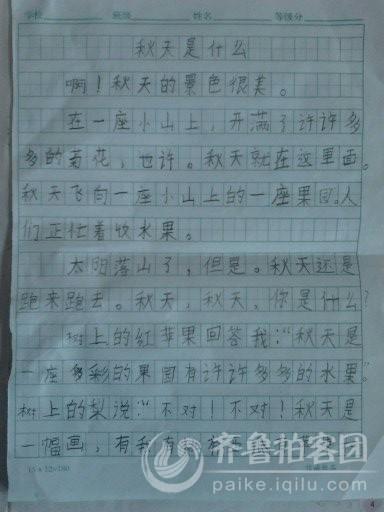 学校 班级 姓名 等级分
秋天是什么
啊！秋天的景色很美。
在一座小山上，开满了许许多
多的菊花，也许。秋天就在这里面。
秋天飞向一座小山上的一座果园。人
们正忙着收水果。
太阳落山了，但是。秋天还是
跑来跑去。秋天，秋天，你是什么？
树上的红苹果回答我：“秋天是
一座多彩的果园有许许多多的水果。”
树上的梨说：“不对！不对！秋天是
一幅画，有
齐鲁拍客团
paike.iqilu.com
4